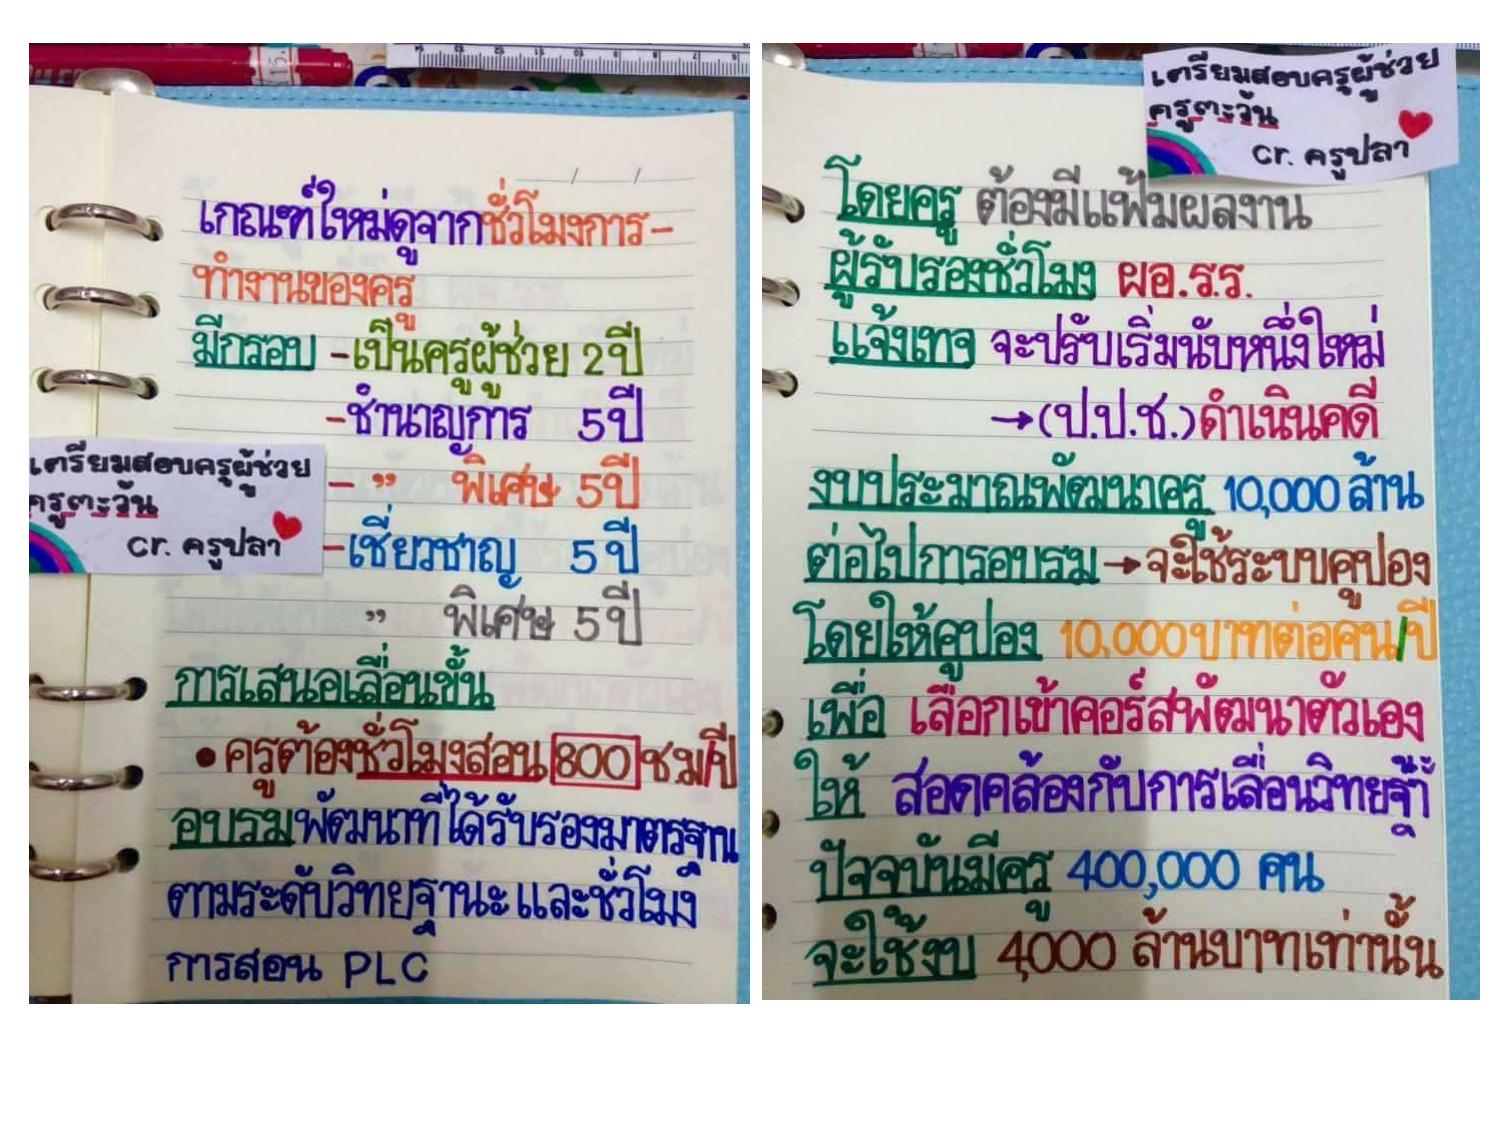 เกณฑ์ใหม่ดูจากชั่วโมงการ-
ทำงานของครู
มีกรอบ -เป็นครูผู้ช่วย 2 ปี
-ชำนาญการ 5 ปี
- " พิเศษ 5 ปี
-เชี่ยวชาญ 5 ปี
" พิเศษ 5 ปี
เตรียมสอบครูผู้ช่วย
ครูตะวัน
cr. ครูปลา
การเสนอเลื่อนขั้น
• ครูต้องชั่วโมงสอน 800 ชม/ปี
อบรมพัฒนาที่ได้รับรองมาตรฐาน
ตามระดับวิทยฐานะและชั่วโมง
การสอน PLC
เตรียมสอบครูผู้ช่วย
ครูตะวัน
cr. ครูปลา
โดยครู ต้องมีแฟ้มผลงาน
ผู้รับรองชั่วโมง ผอ.ร.ร.
แจ้งเทจ จะปรับเริ่มนับหนึ่งใหม่
→(ป.ป.ช.)ดำเนินคดี
งบประมาณพัฒนาครู 10,000 ล้าน
ต่อไปการอบรม→จะใช้ระบบคูปอง
โดยให้คูปอง 10,000บาทต่อคน/ปี
เพื่อ เลือกเข้าคอร์สพัฒนาตัวเอง
ให้ สอดคล้องกับการเลื่อนวิทยฐานะ
ปัจจบันมีครู 400,000 คน
จะใช้งบ 4,000 ล้านบาทเท่านั้น